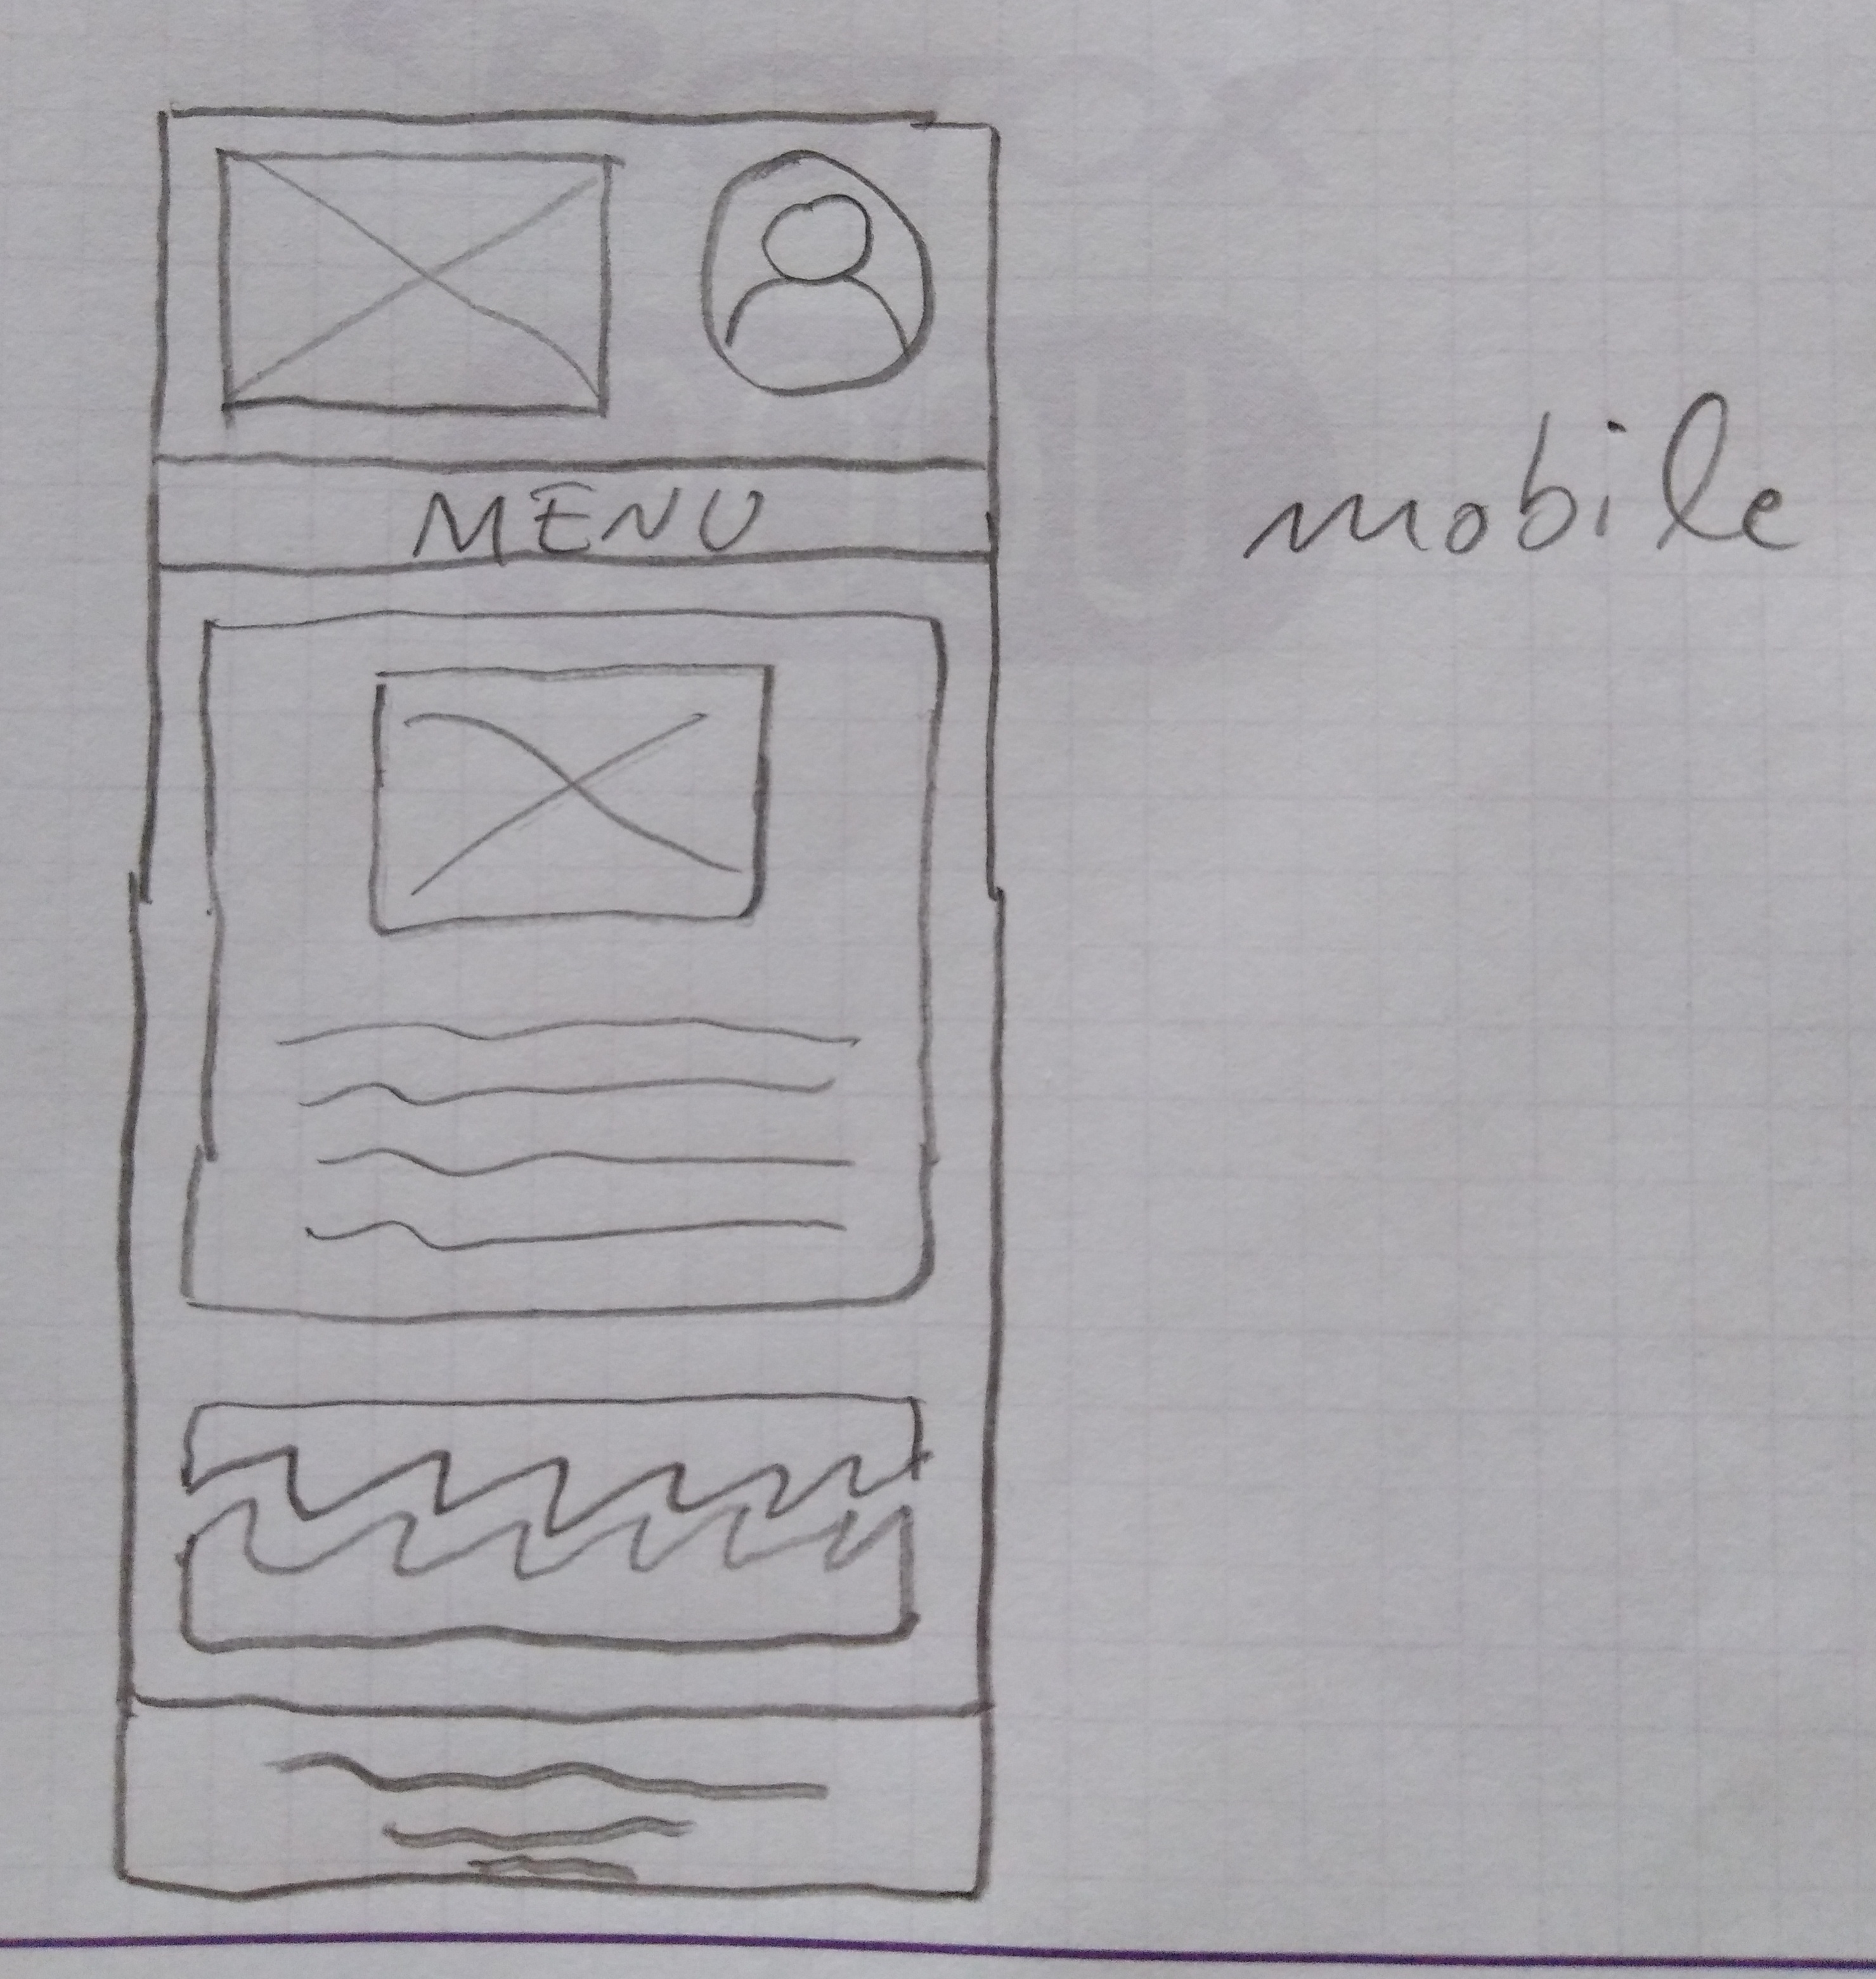 MENU
mobile